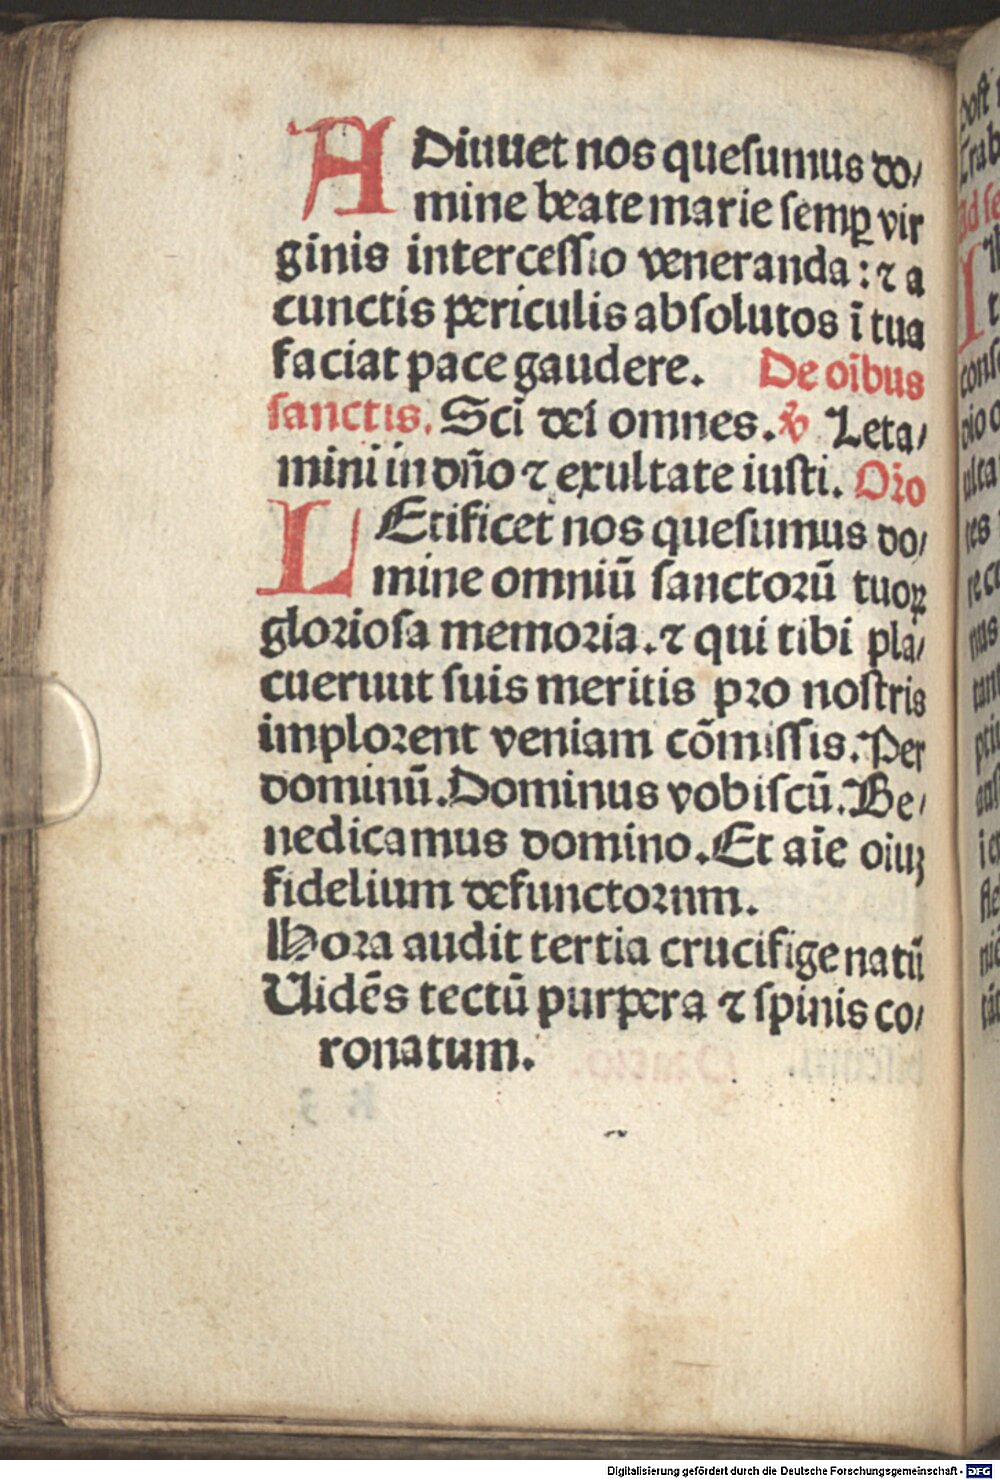 ADiuuet nos quesumus do/
mine beate marie semꝑ vir
ginis intercessio veneranda : ⁊ a
cunctis periculis absolutos ī tua
faciat pace gaudere. De oībus
sanctis. Scī dei omnes. ꝟ Leta/
mini in dño ⁊ exultate iusti. Oŕo
LEtificet nos quesumus do/
mine omniū sanctorū tuoꝝ
gloriosa memoria. ⁊ qui tibi pla/
cueruut suis meritis pro nostris
implorent veniam cōmissis. Per
dominū. Dominus vobiscū. Be/
nedicamus domino. Et aīe oiuꝫ
fidelium defunctornm.
Hora audit tertia crucifige natū
Uidēs tectū purpera ⁊ spinis co/
ronatum.
Digitalisierung gefördert durch die Deutsche Forschungsgemeinschaft - DFG